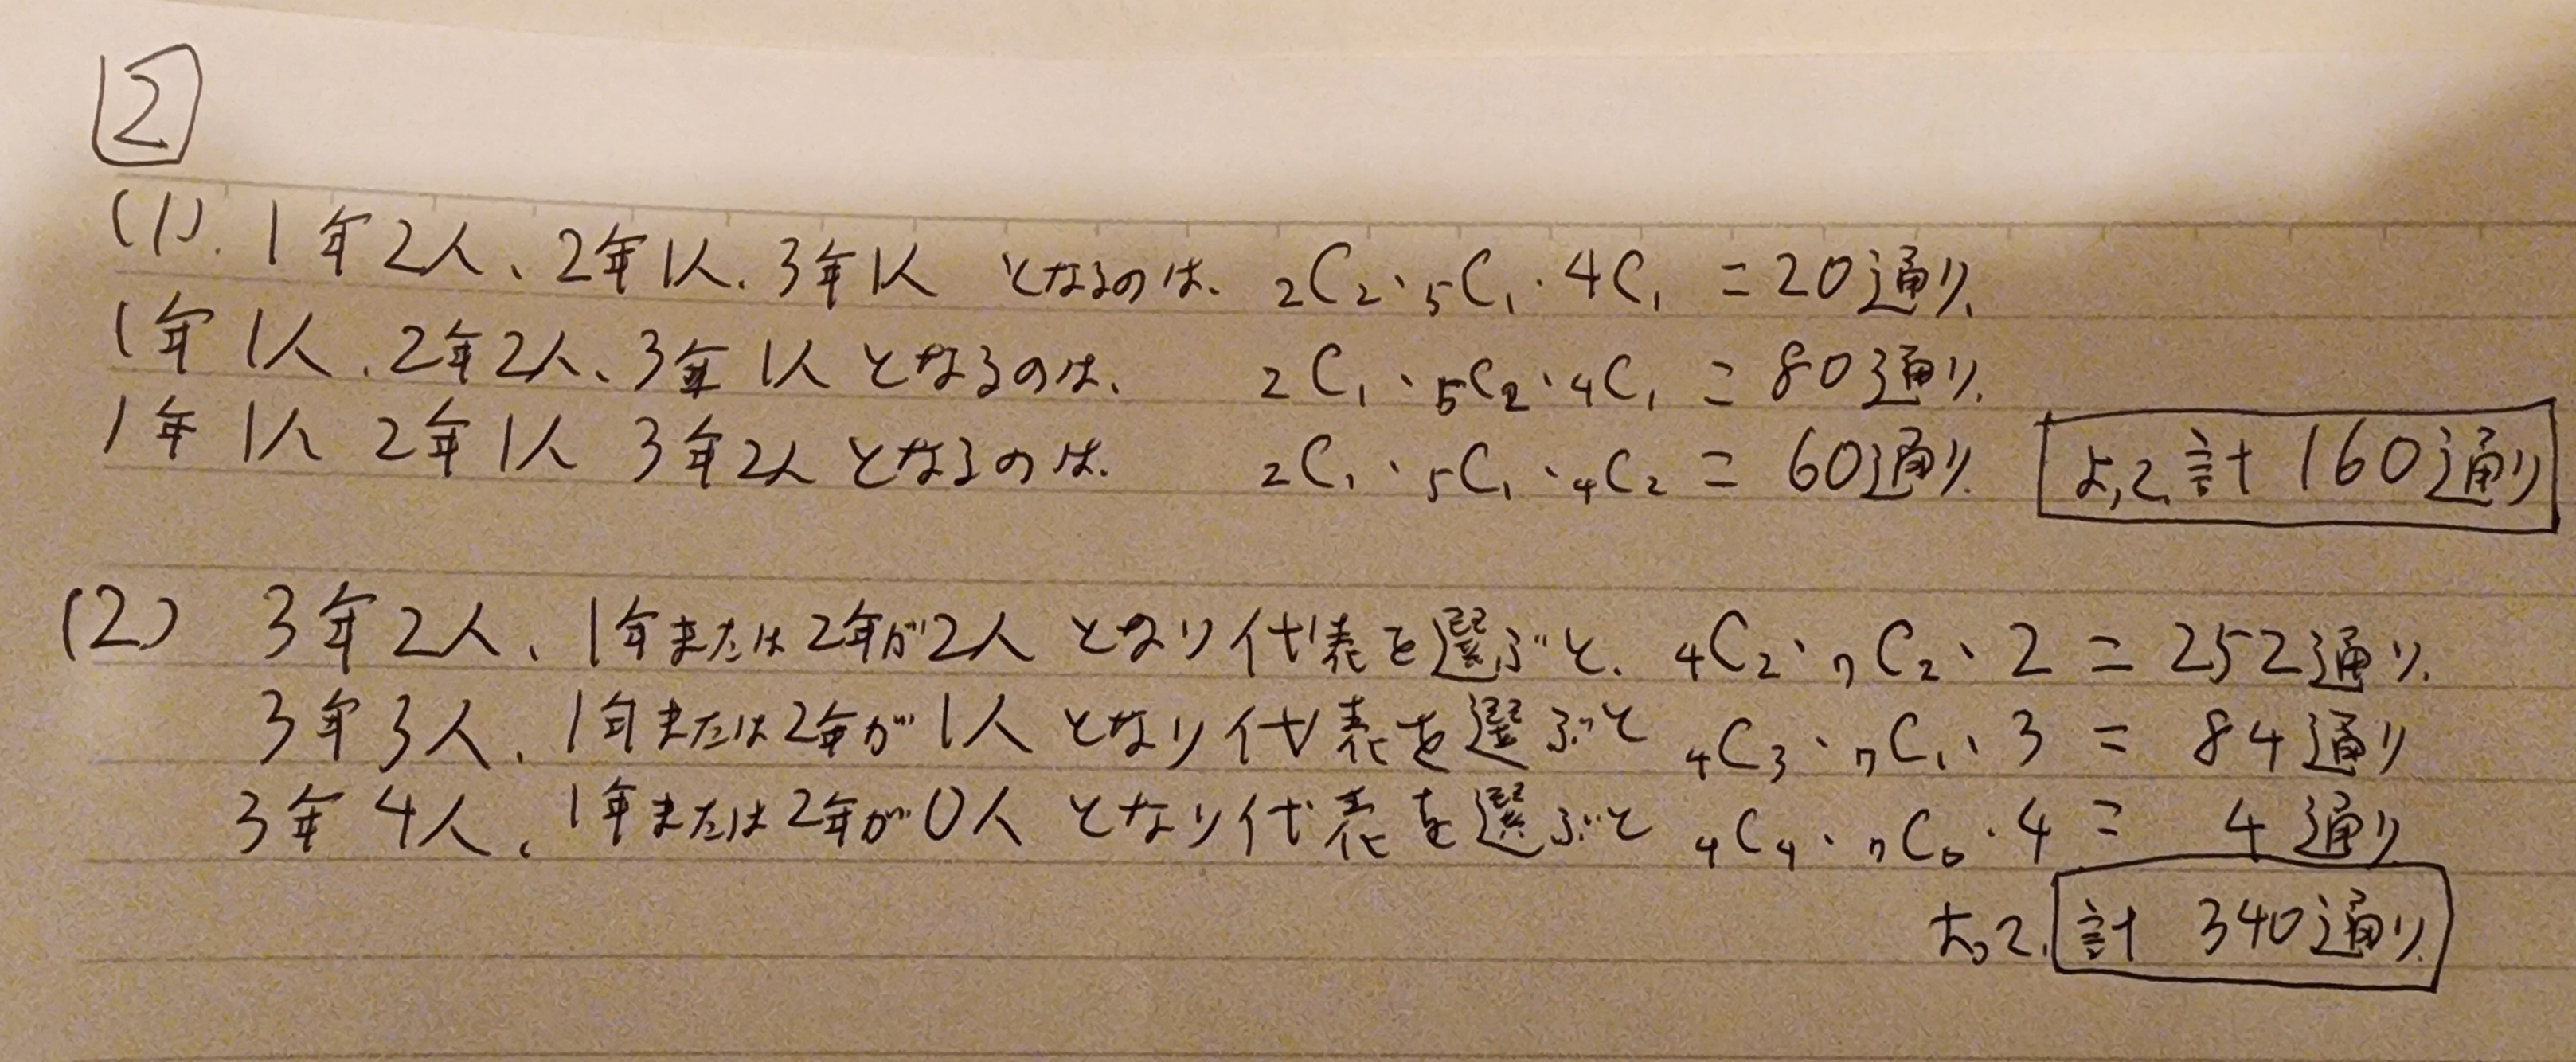 2
(1). 1年2人、2年1人、3年1人 となるのは、 ₂C₂・₅C₁・4C₁ = 20通り、
1年1人、2年2人、3年1人 となるのは、 ₂C₁・₅C₂・₄C₁ = 80通り、
1年1人 2年1人 3年2人 となるのは、 ₂C₁・₅C₁・₄C₂ = 60通り、 よって、計 160通り
(2) 3年2人、1年または2年が2人 となり代表を選ぶと、 ₄C₂・₇C₂・2 = 252通り、
3年3人、1年または2年が1人 となり代表を選ぶと ₄C₃・₇C₁・3 = 84通り
3年4人、1年または2年が0人 となり代表を選ぶと ₄C₄・₇C₀・4 = 4通り
よって、計 340通り、